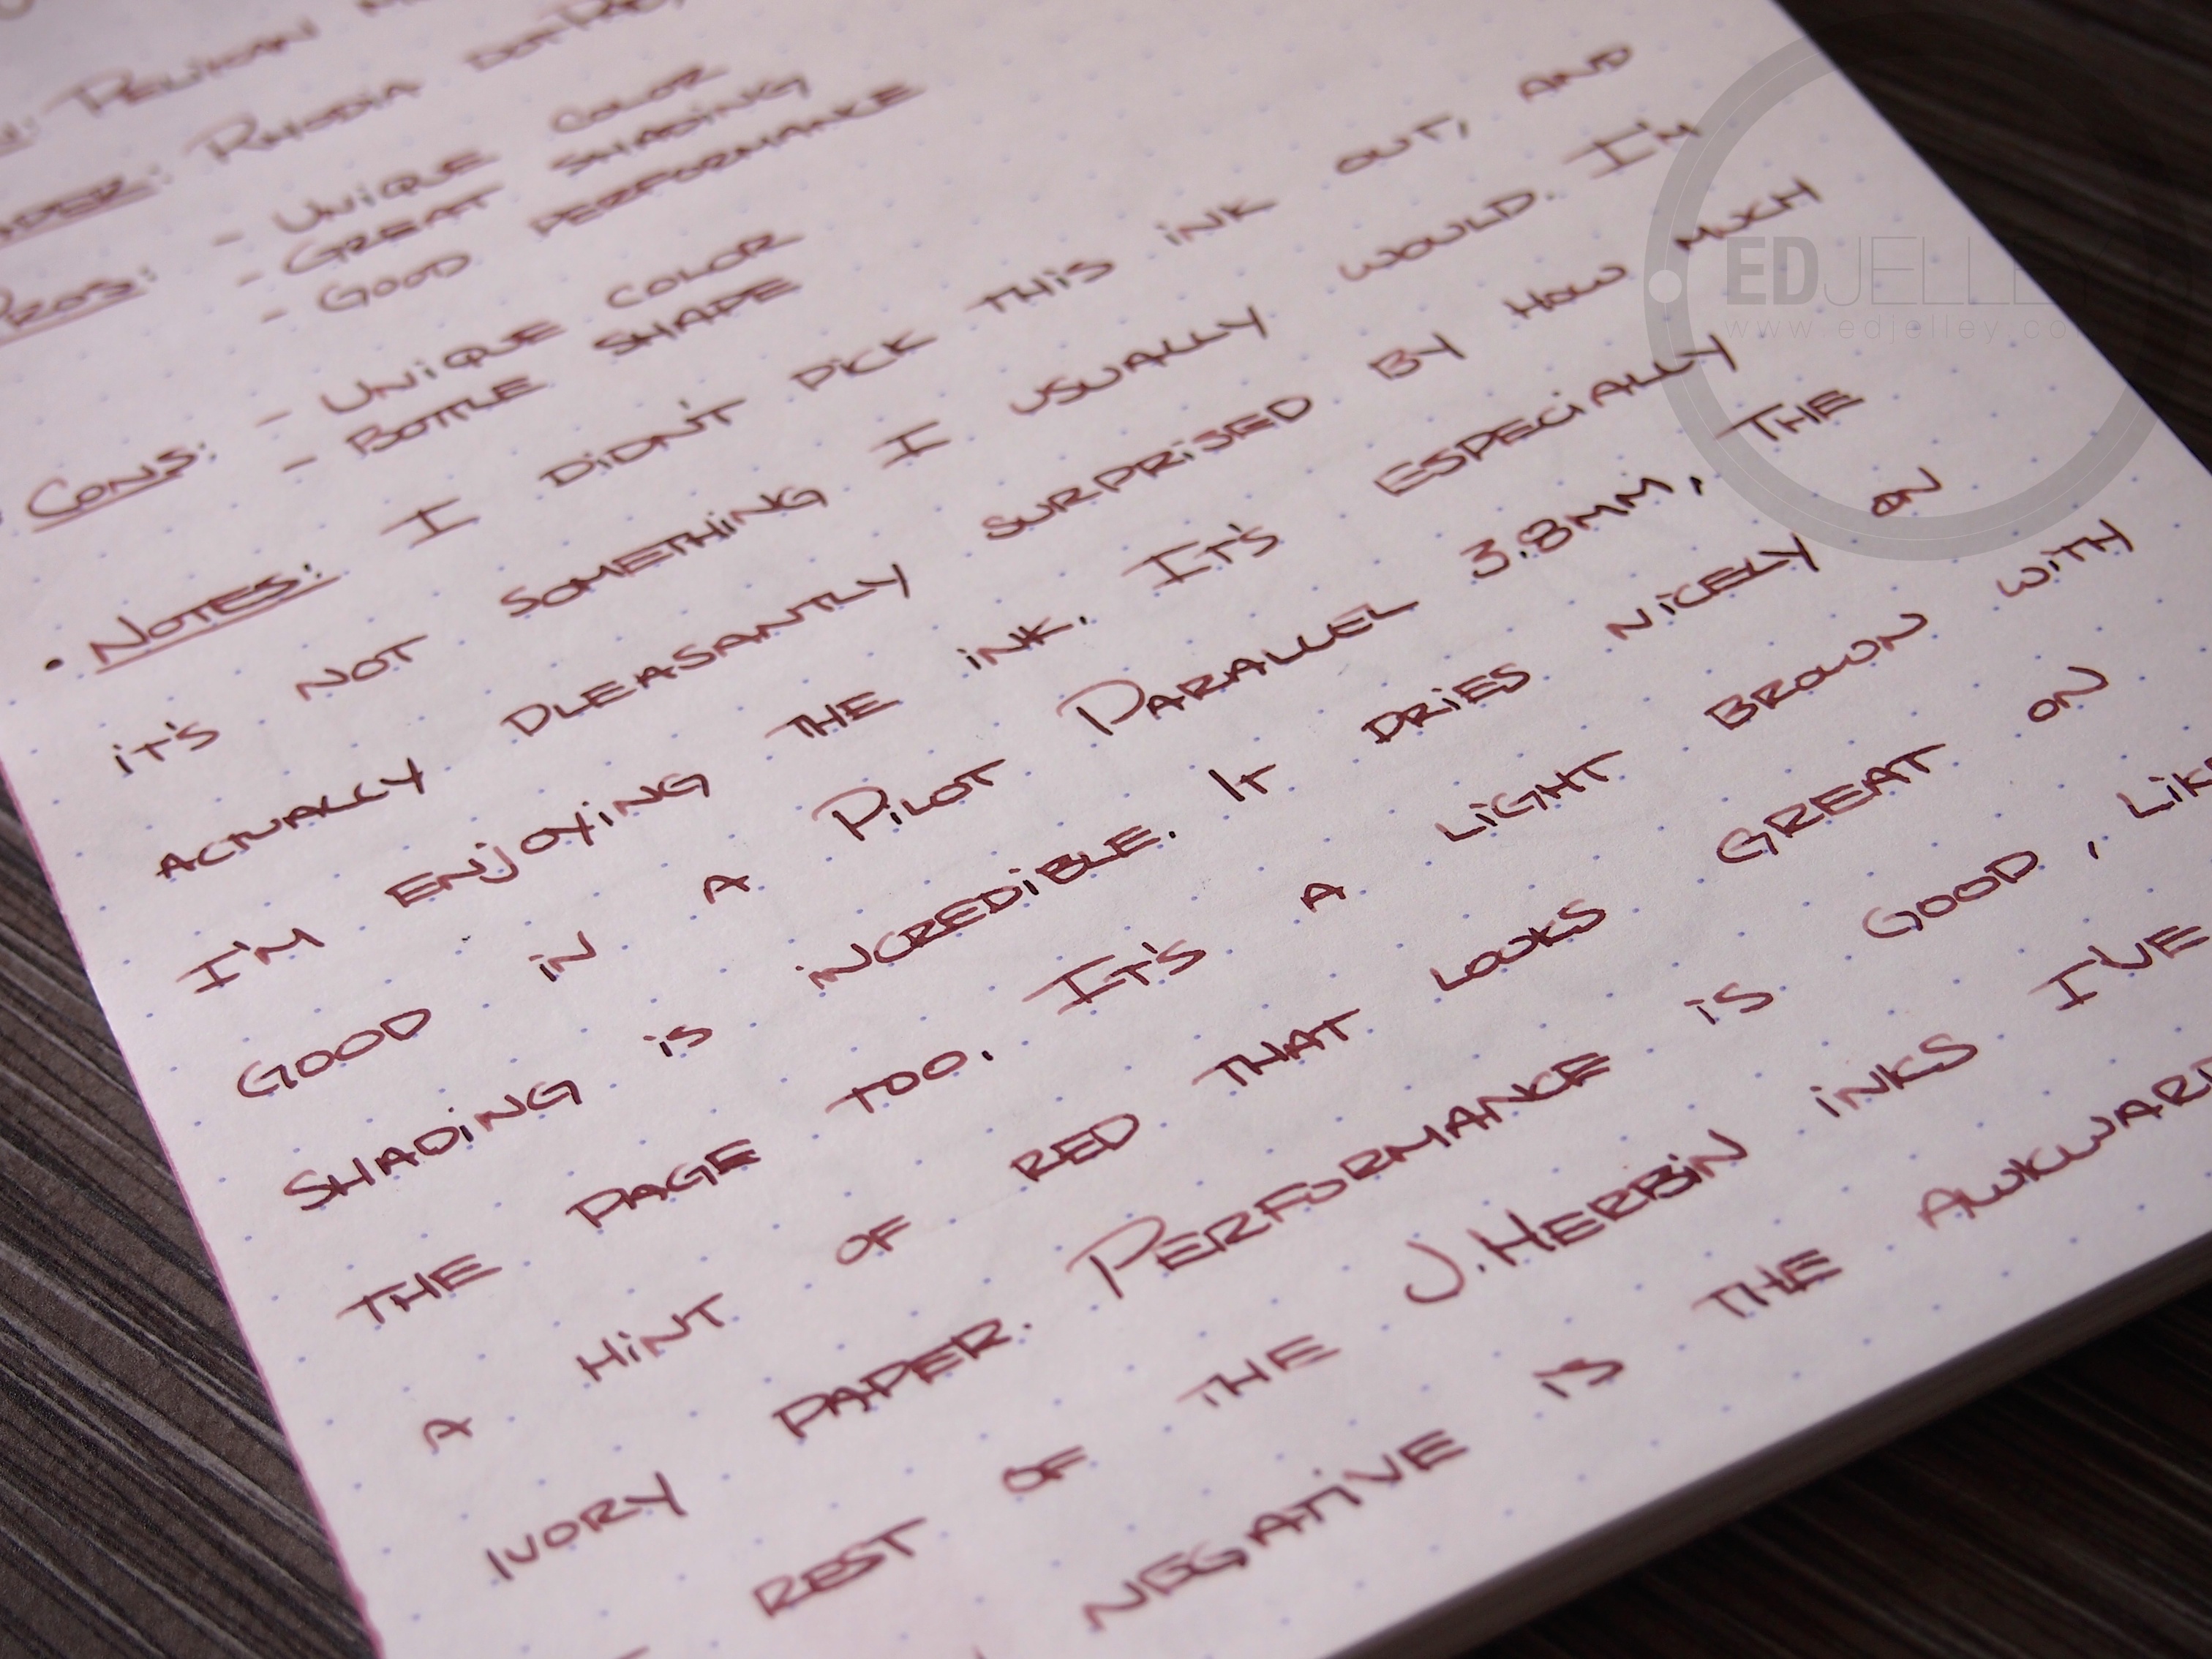 : PELIKAN
PAPER: RHODIA DOT
PROS: - UNIQUE COLOR
- GREAT SHADING
- GOOD PERFORMANCE
CONS: - UNIQUE COLOR
- BOTTLE SHAPE
• NOTES: I DIDN'T PICK THIS INK OUT, AND
IT'S NOT SOMETHING I USUALLY WOULD. I'M
ACTUALLY PLEASANTLY SURPRISED BY HOW MUCH
I'M ENJOYING THE INK. IT'S ESPECIALLY
GOOD IN A PILOT PARALLEL 3.8MM, THE
SHADING IS INCREDIBLE. IT DRIES NICELY ON
THE PAGE TOO. IT'S A LIGHT BROWN WITH
A HINT OF RED THAT LOOKS GREAT ON
IVORY PAPER. PERFORMANCE IS GOOD, LIKE
REST OF THE J. HERBIN INKS I'VE
NEGATIVE IS THE AWKWARD
EDJELLEY
www.edjelley.co